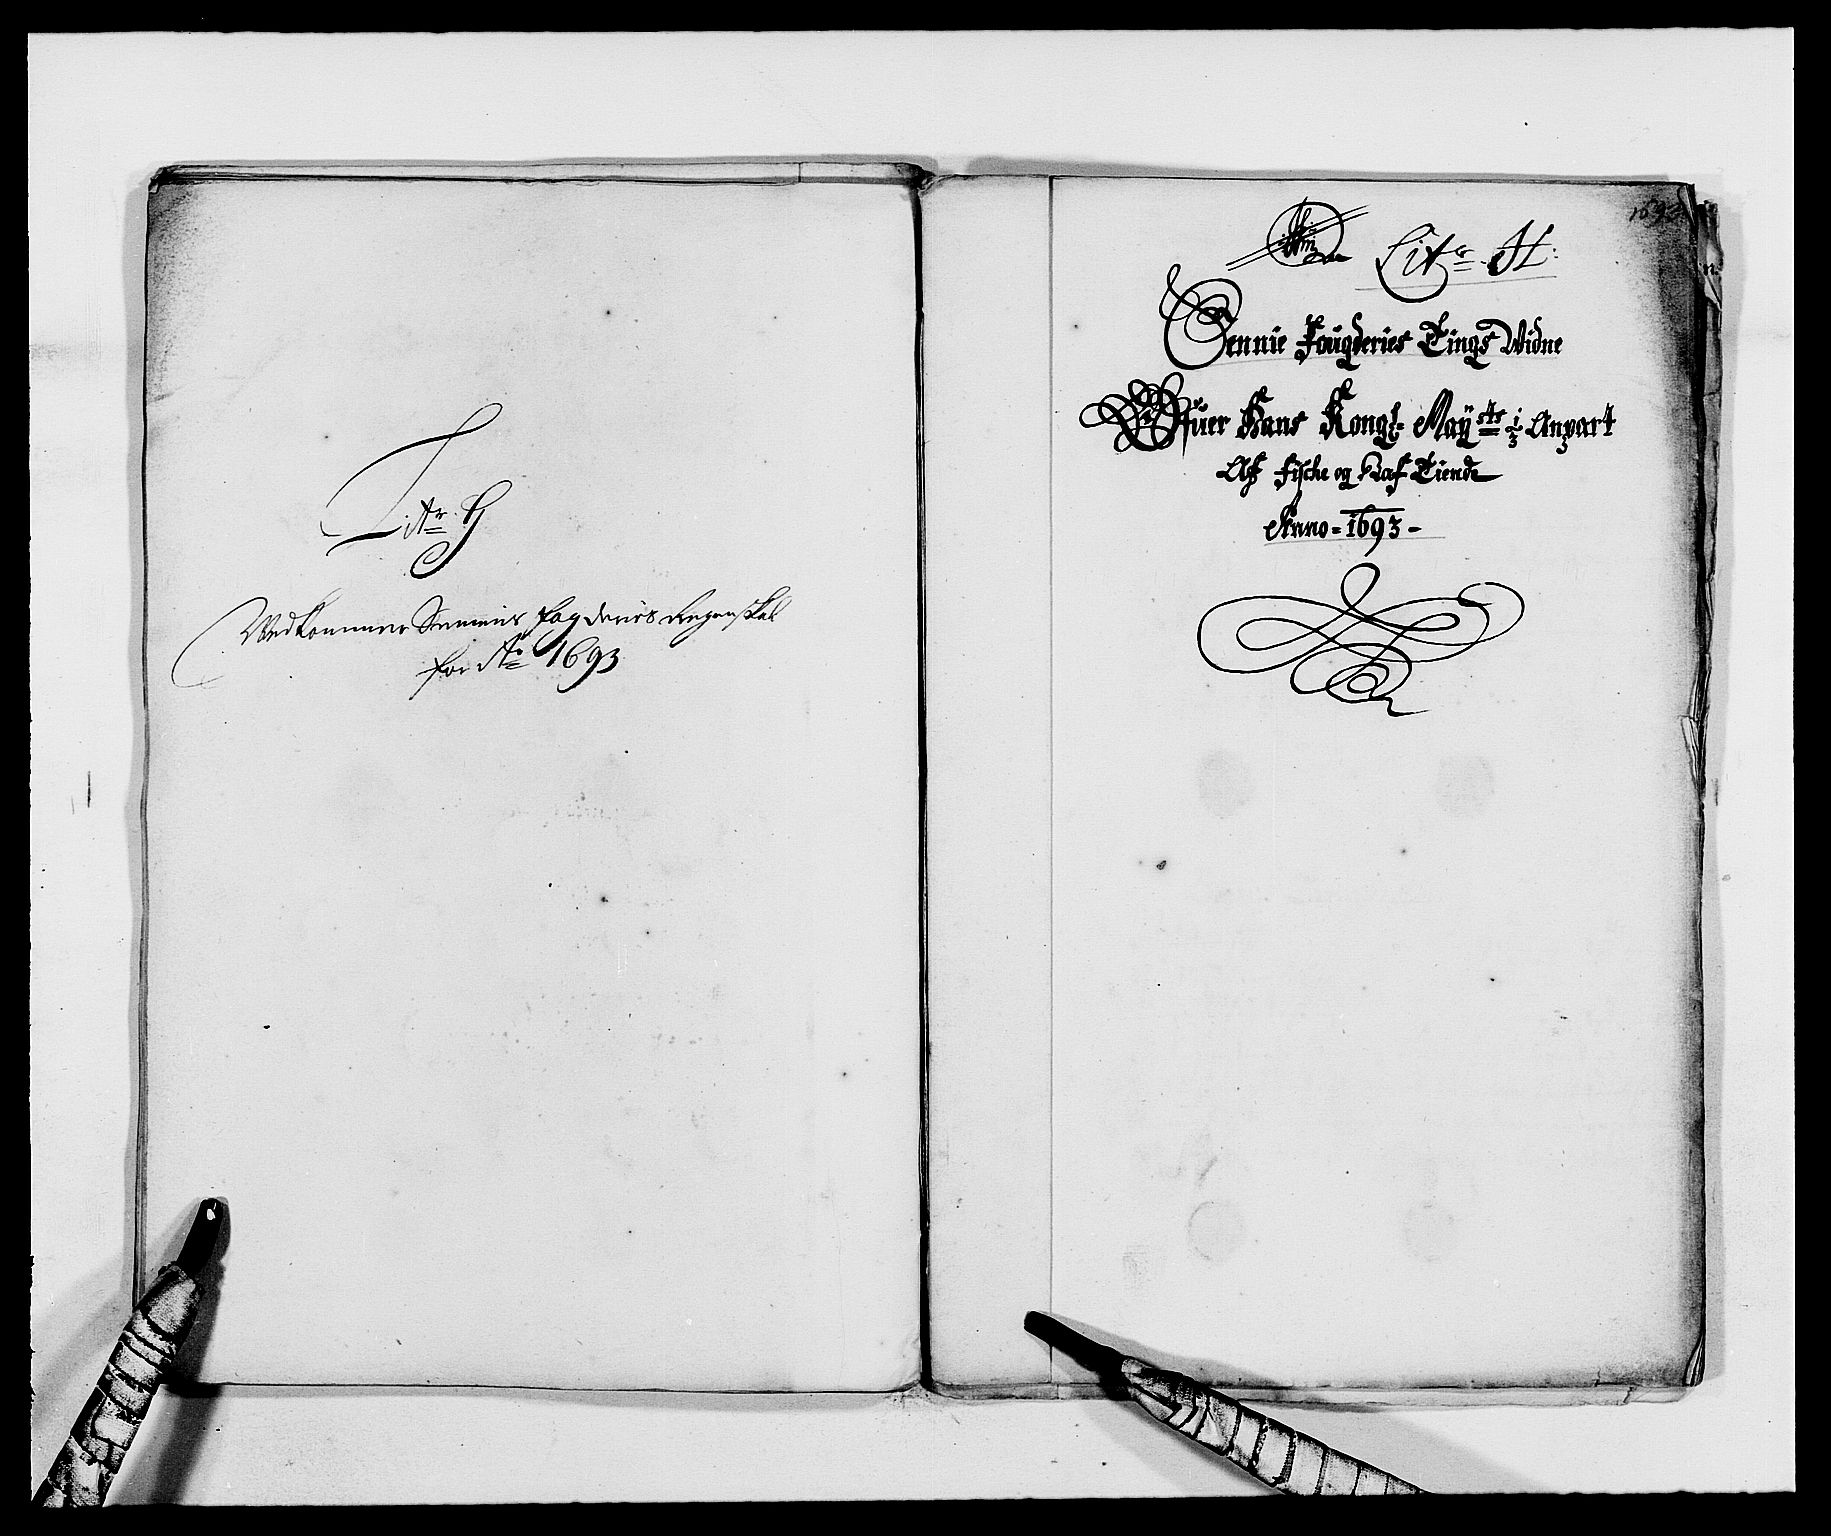 Litr. G
Vedkommer Senniens fogderies Regenskab
for Ao 1693
1693
Litr. H:
Sennie Fougderies Tings Widne
Offuer Hans Kongl. Maysts 1/3 Anpart
Aff fische og Raf Tiende
Anno - 1693 -